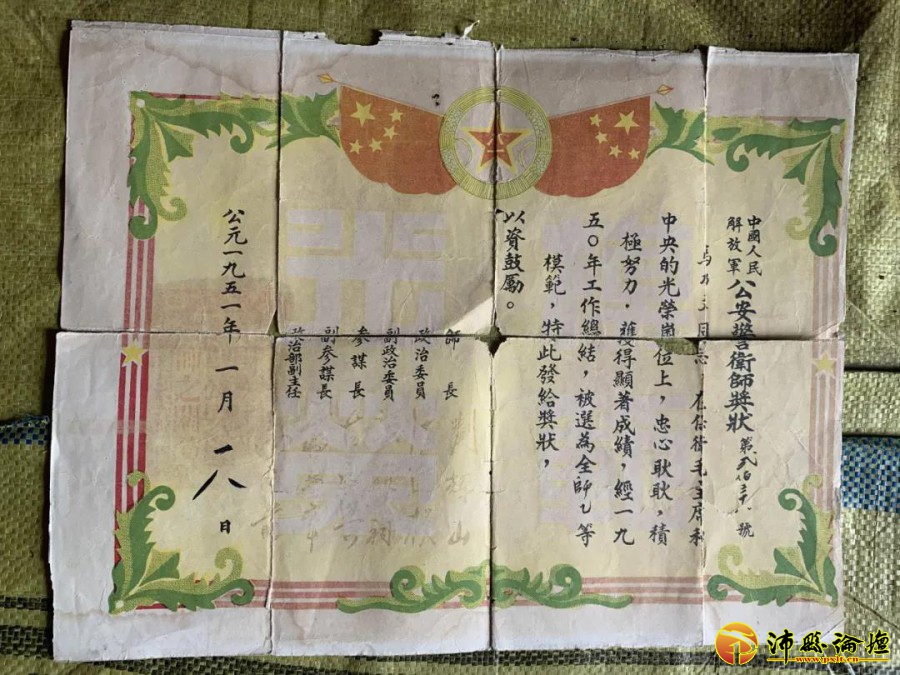 中國人民
解放軍
公安警衛師獎狀
第貳佰 號
馬 同志 在保衛毛主席和
中央的光榮崗位上，忠心耿耿，積
極努力，獲得顯著成績，經一九
五〇年工作總結，被選為全師乙等
模範，特此發給獎狀，
以資鼓勵。
師長
政治委員
副政治委員
參謀長
副參謀長
政治部副主任
公元一九五一年一月一八日
沛縣論壇
www.pxlt.cn